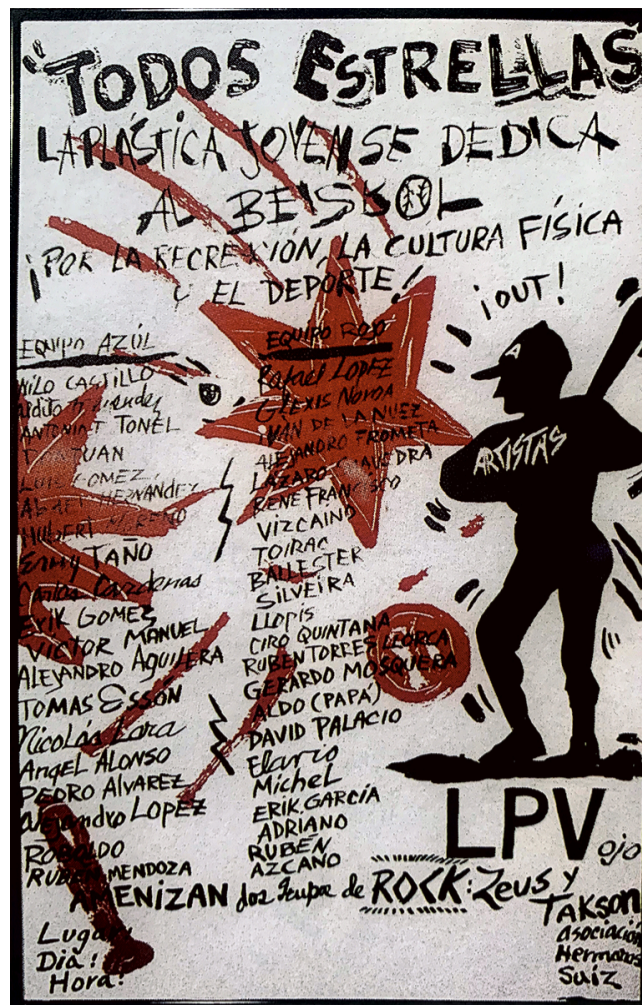 TODOS ESTRELLAS
LA PLÁSTICA JOVEN SE DEDICA
AL BEISBOL
¡POR LA RECREACIÓN, LA CULTURA FÍSICA
Y EL DEPORTE!
¡OUT!
EQUIPO AZÚL
NILO CASTILLO
ANTONIO TONEL
GOMEZ
HERNANDEZ
HUBERT
TAÑO
Carlos Cárdenas
ERIK GOMEZ
VICTOR MANUEL
ALEJANDRO AGUILERA
TOMAS ESSON
Nicolás Lara
ANGEL ALONSO
PEDRO ALVAREZ
Alejandro LOPEZ
ROBALDO
RUBÉN MENDOZA
EQUIPO ROJO
Rafael LOPEZ
GLEXIS NOVOA
IVAN DE LA NUEZ
ALEJANDRO FROMETA
LÁZARO SAAVEDRA
RENE FRANCISCO
VIZCAINO
TOIRAC
BALLESTER
SILVEIRA
LLOPIS
CIRO QUINTANA
RUBEN TORRES LLORCA
GERARDO MOSQUERA
ALDO (PAPÁ)
DAVID PALACIO
Elario
Michel
ERIK GARCÍA
ADRIANO
RUBÉN
AZCANO
A
ARTISTAS
LPV
ojo
AMENIZAN dos Grupos de ROCK: Zeus y
TAKSON
Asociación
Hermanos
Saíz
Lugar:
Día:
Hora: